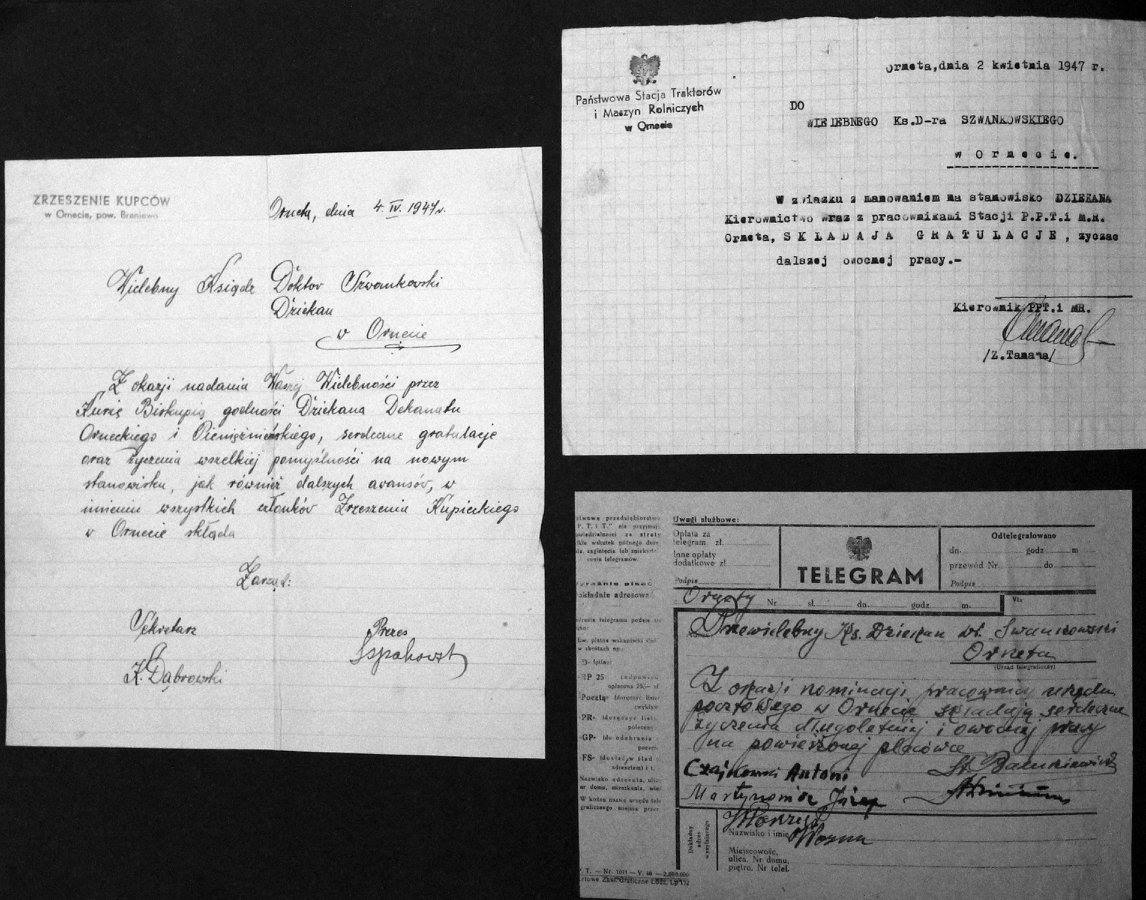 ZRZESZENIE KUPCÓW
w Ornecie, pow. Braniewo
Orneta, dnia 4. IV. 1947 r.
Wielebny Ksiądz Doktor Szwankowski
Dziekan
w Ornecie
Z okazji nadania Waszej Wielebności przez
Kurię Biskupią godności Dziekana Dekanatu
Orneckiego i Pieniężnieńskiego, serdeczne gratulacje
oraz życzenia wszelkiej pomyślności na nowym
stanowisku, jak również dalszych awansów, w
imieniu wszystkich członków Zrzeszenia Kupieckiego
w Ornecie składa
Zarząd:
Sekretarz
Prezes
K. Dąbrowski
Państwowa Stacja Traktorów
i Maszyn Rolniczych
w Ornecie
Orneta,dnia 2 kwietnia 1947 r.
DO
WIELEBNEGO Ks.D-ra SZWANKOWSKIEGO
w Ornecie.
W związku z manowaniem na stanowisko DZIEKANA
Kierownictwo wraz z pracownikami Stacji P.P.T.i M.R.
Orneta, SKŁADAJA GRATULACJE, zycząc
dalszej owocnej pracy.-
Kierownik PPT.i MR.
/Z.Tamara/
Uwagi służbowe:
Opłata za
telegram zł.
Inne opłaty
dodatkowe zł
Podpis
TELEGRAM
Odtelegrafowano
dn. godz m
przewód Nr. do
Podpis
Nr. sł. dn. godz. m.
Via
Przewielebny Ks. Dziekan dr. Szwankowski
Orneta
(Urząd telegraficzny)
Z okazji nominacji pracownicy urzędu
pocztowego w Ornecie składają serdeczne
życzenia długoletniej i owocnej pracy
na powierzonej placówce
Czajkowski Antoni
Józef
Nazwisko i imię
Miejscowość,
ulica, Nr. domu,
piętro, Nr telef.
Dokładny
adres
wysyłającego